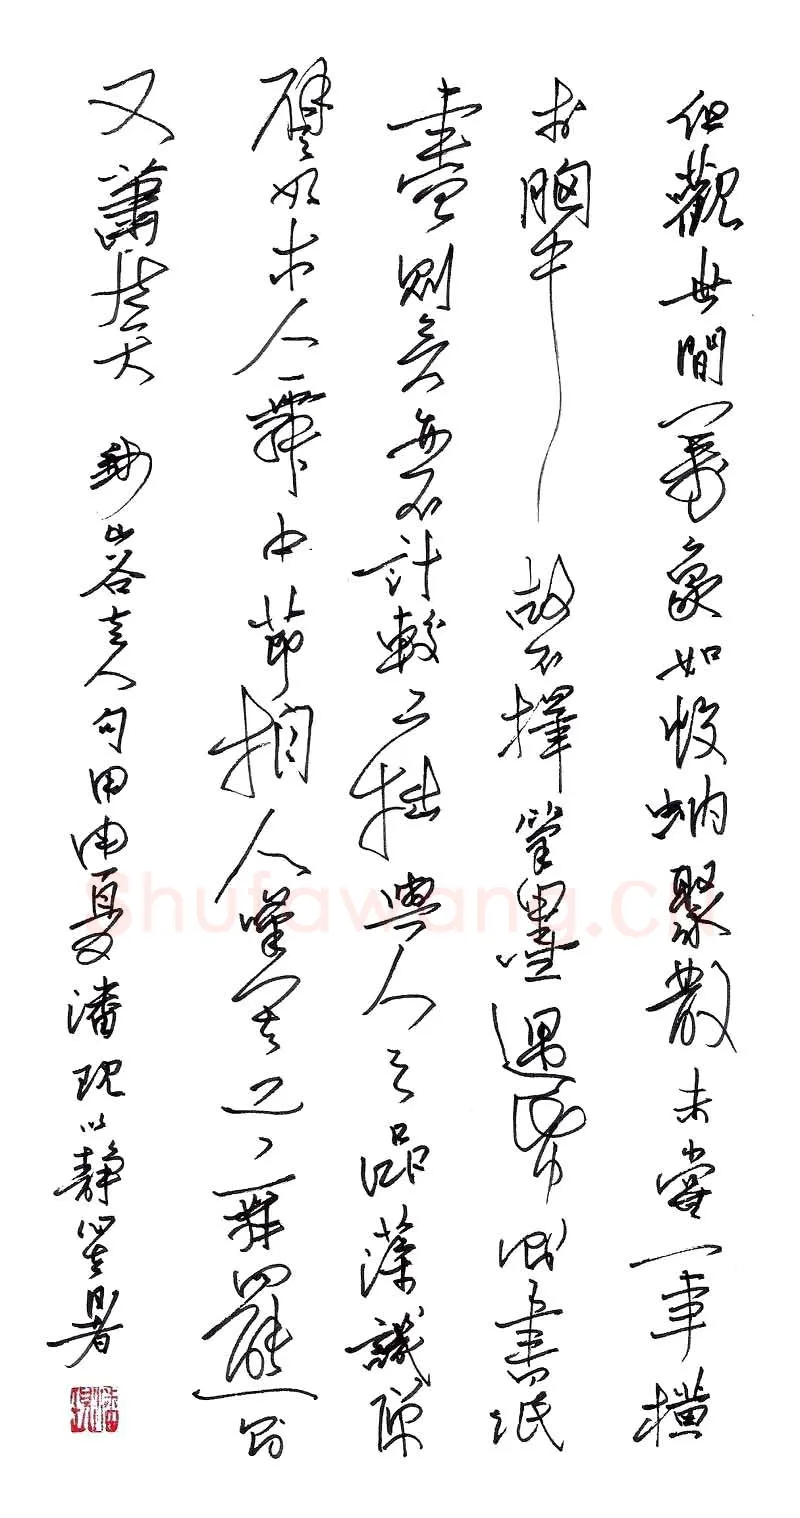 但觀世間萬象如蚊蚋聚散未嘗一事橫
於胸中故不擇筆墨遇紙則書紙
盡則矣亦不計較工拙與人之品藻譏彈
譬如木人舞中節拍人嘆其工舞罷則
又蕭然矣
錄山谷老人句甲申夏潘現以靜署
Shufawang.cn